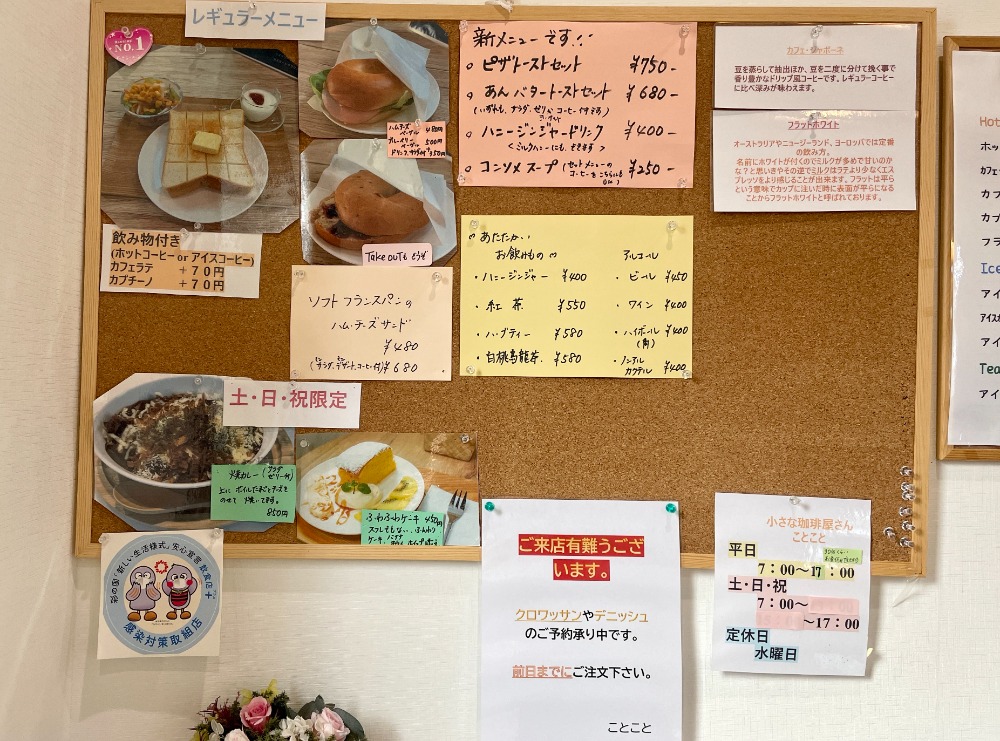 レギュラーメニュー
NO.1
飲み物付き
(ホットコーヒー or アイスコーヒー)
カフェラテ ＋７０円
カプチーノ ＋７０円
ハムチーズ
ベーグル 480円
ブルーベリー
ベーグル 500円
Take outも どうぞ
ソフト フランスパンの
ハム・チーズ サンド
¥480
(サラダ、デザート、コーヒー付)¥680
新メニューです！！
ピザトーストセット ¥750-
あんバタートーストセット ¥680-
ハニージンジャードリンク ¥400-
<ミルクハニーにも、できます>
コンソメスープ (セットメニューの
コーヒーをこちらにも
OK) ¥250-
あたたかい
お飲みもの
・ハニージンジャー ¥400
・紅茶 ¥550
・ハーブティー ¥580
・白桃烏龍茶 ¥580
アルコール
・ビール ¥450
・ワイン ¥400
・ハイボール ¥400
(角)
・ノンアル
カクテル ¥400
カフェ・ジャポーネ
豆を蒸らして抽出ほか、豆を二度に分けて挽く事で
香り豊かなドリップ風コーヒーです。レギュラーコーヒー
に比べ深みが味わえます。
フラットホワイト
オーストラリアやニュージーランド、ヨーロッパでは定番
の飲み方。
名前にホワイトが付くのでミルクが多めで甘いのか
な？と思いきやその逆でミルクはラテより少なくエス
プレッソをより感じることが出来ます。フラットは平ら
という意味でカップに注いだ時に表面が平らになる
ことからフラットホワイトと呼ばれております。
土・日・祝限定
焼カレー (サラダ
ゼリー付)
上に ボイルたまごとチーズを
のせて 焼いてます。
850円
ふわふわケーキ 450円
スフレでもない、ふんわり
彩の国「新しい生活様式」安心宣言 飲食店＋
感染対策取組店
ご来店有難うござ
います。
クロワッサンやデニッシュ
のご予約承り中です。
前日までにご注文下さい。
ことこと
小さな珈琲屋さん
ことこと
平日
7：00～17：00
土・日・祝
7：00～
～17：00
定休日
水曜日
Hot
ホッ
カフェ
カフ
カプ
フラ
Ice
アイ
アイスカ
アイ
Tea
アイ